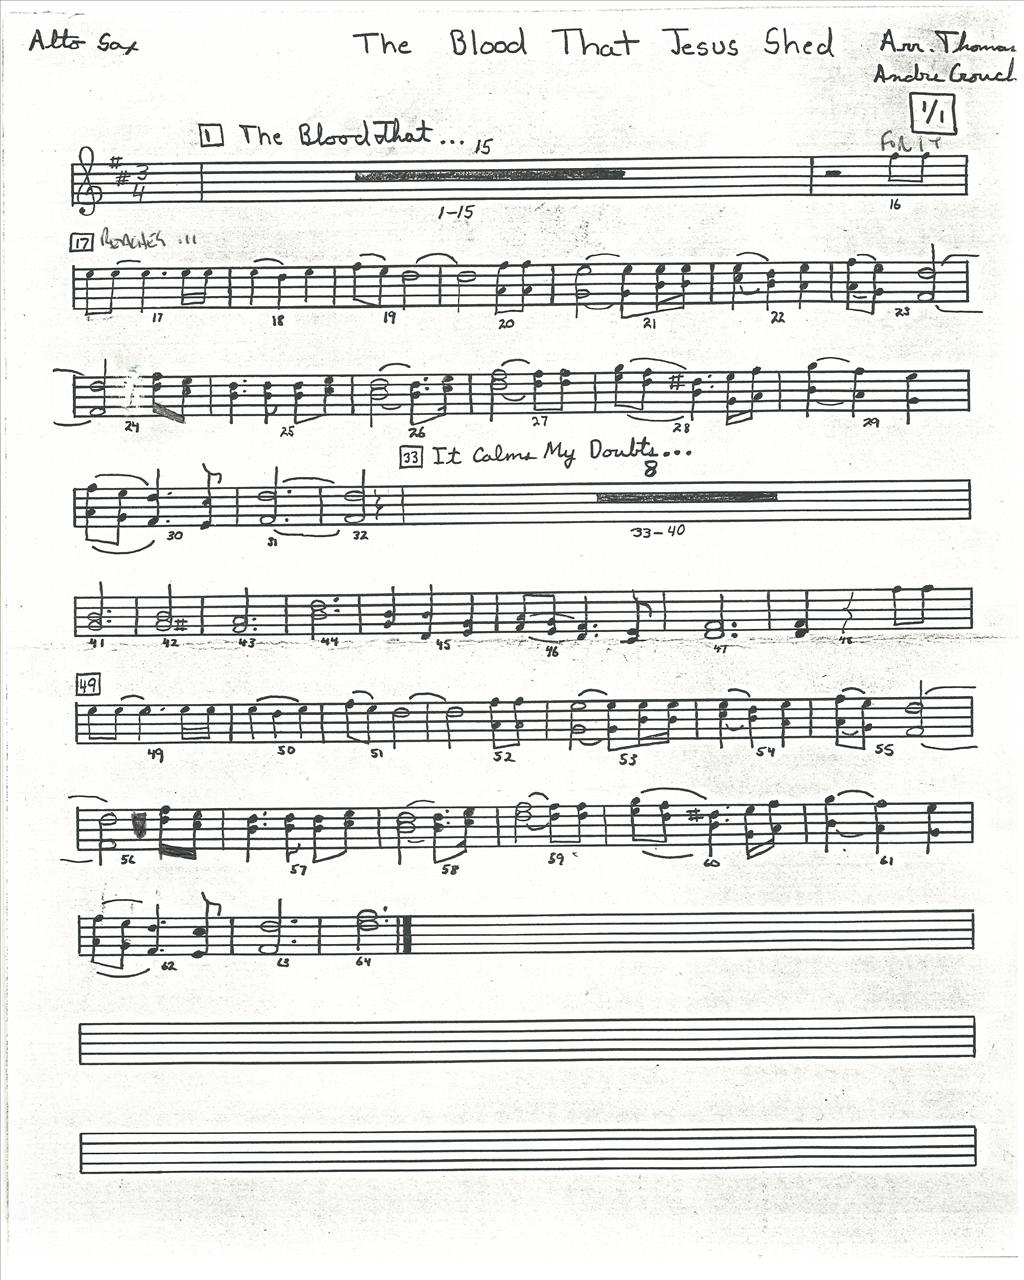 Alto Sax The Blood That Jesus Shed Arr. Thomas
Andre Crouch
1/1
1 The Blood That... 15 FOR IT
3
4
1-15 16
17 REACHES ...
17 18 19 20 21 22 23
24 25 26 27 28 29
33 It Calms My Doubts...
8
30 31 32 33-40
41 42 43 44 45 46 47 48
49
49 50 51 52 53 54 55
56 57 58 59 60 61
62 63 64